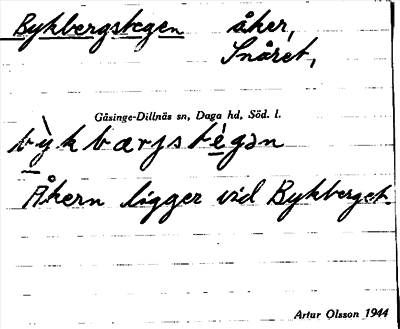 Bykbergstegen åker,
Snåret,
Gåsinge-Dillnäs sn, Daga hd, Söd. l.
bỳkbærjstégən
Åkern ligger vid Bykberget.
Artur Olsson 1944